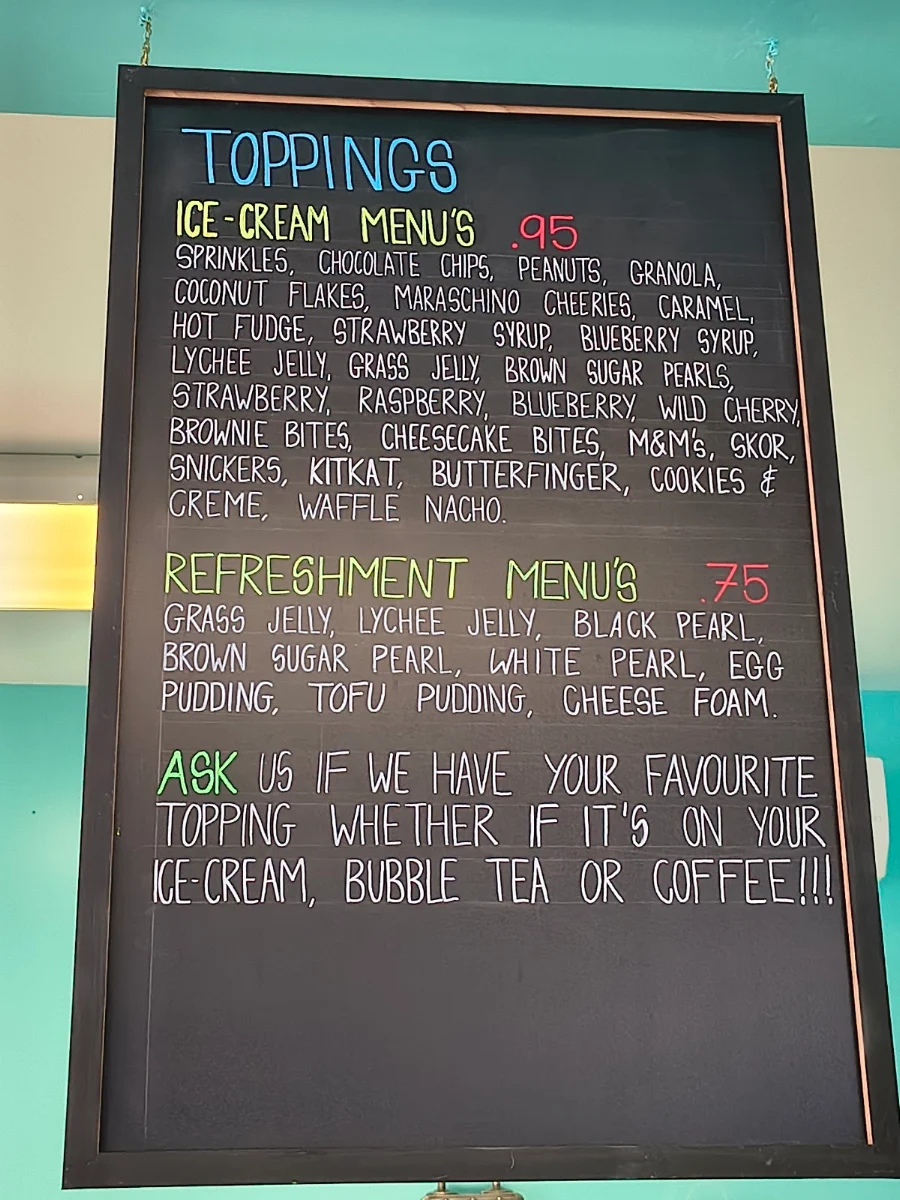 TOPPINGS
ICE-CREAM MENU'S .95
SPRINKLES, CHOCOLATE CHIPS, PEANUTS, GRANOLA,
COCONUT FLAKES, MARASCHINO CHEERIES, CARAMEL,
HOT FUDGE, STRAWBERRY SYRUP, BLUEBERRY SYRUP,
LYCHEE JELLY, GRASS JELLY, BROWN SUGAR PEARLS,
STRAWBERRY, RASPBERRY, BLUEBERRY, WILD CHERRY,
BROWNIE BITES, CHEESECAKE BITES, M&M's, SKOR,
SNICKERS, KITKAT, BUTTERFINGER, COOKIES &
CREME, WAFFLE NACHO.
REFRESHMENT MENU'S .75
GRASS JELLY, LYCHEE JELLY, BLACK PEARL,
BROWN SUGAR PEARL, WHITE PEARL, EGG
PUDDING, TOFU PUDDING, CHEESE FOAM.
ASK US IF WE HAVE YOUR FAVOURITE
TOPPING WHETHER IF IT'S ON YOUR
ICE-CREAM, BUBBLE TEA OR COFFEE!!!